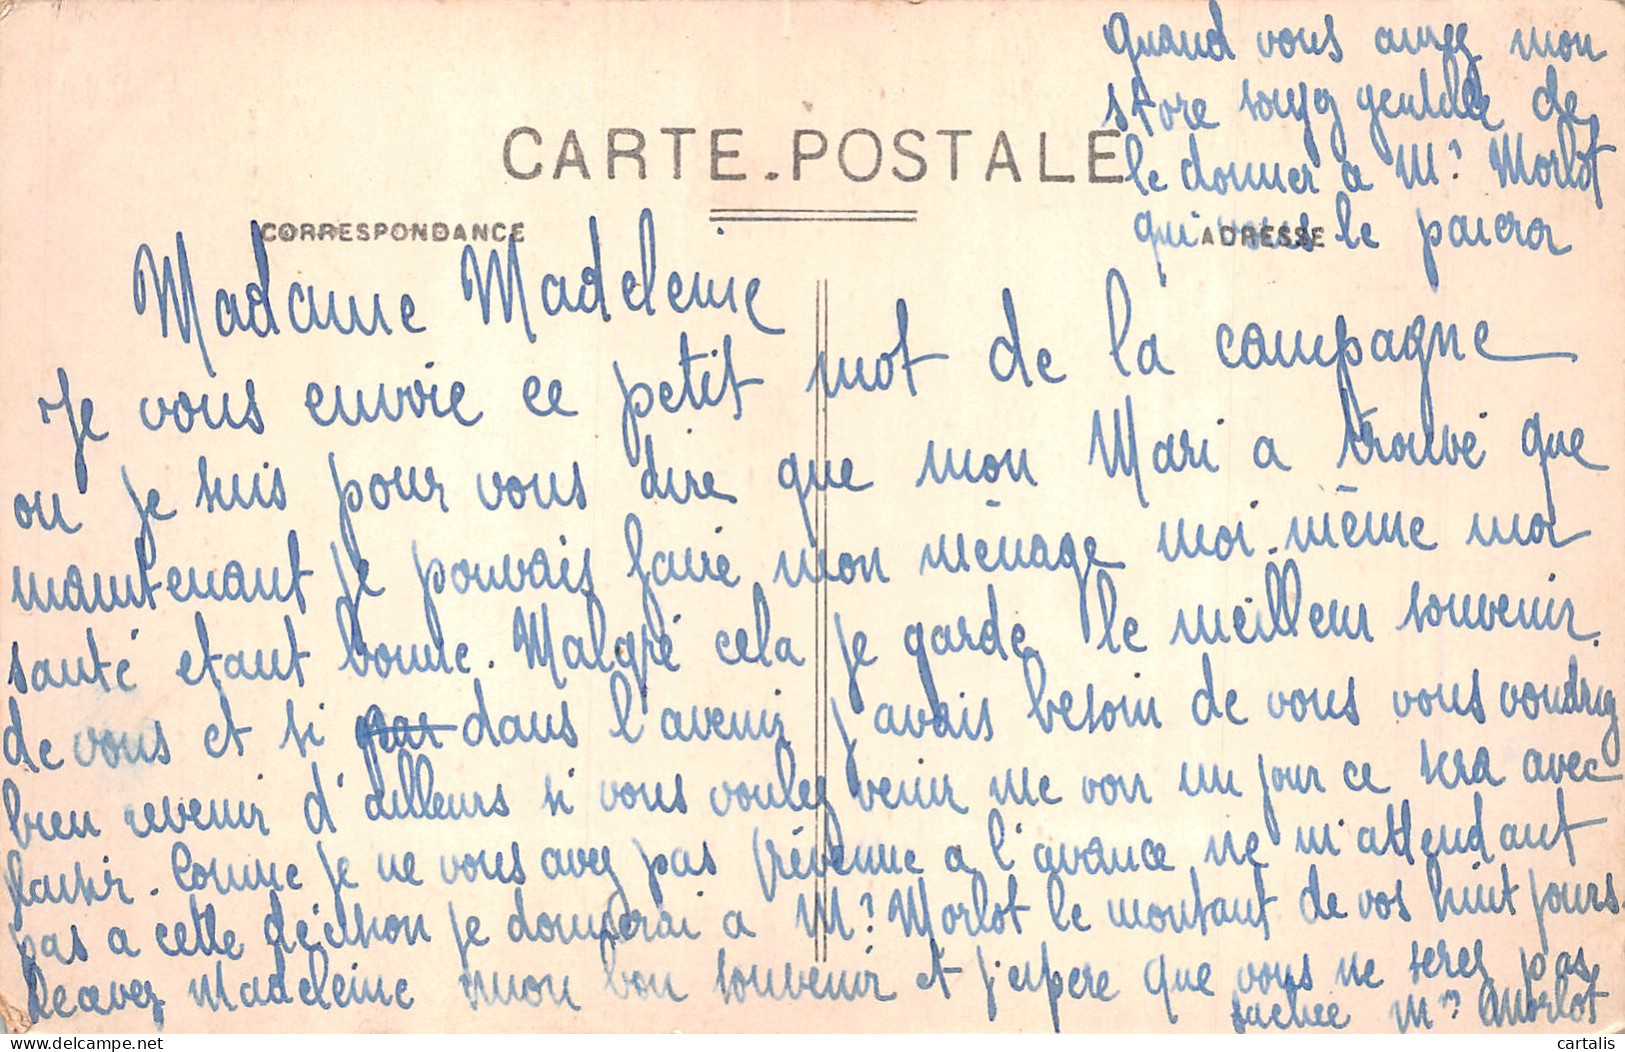 Quand vous aurez mon
store soyez gentille de
le donner a Mr Morlot
qui vous le paiera
CARTE POSTALE
CORRESPONDANCE
ADRESSE
Madame Madeleine
Je vous envoie ce petit mot de la campagne
ou je suis pour vous dire que mon Mari a trouvé que
maintenant je pouvais faire mon ménage moi-même ma
santé etant bonne. Malgré cela je garde le meilleur souvenir
de vous et si dans l'avenir j'avais besoin de vous vous voudriez
bien revenir d'ailleurs si vous voulez venir me voir un jour ce sera avec
plaisir. Comme je ne vous avez pas prévenue a l'avance ne m'attendant
pas a cette décision je donnerai a Mr Morlot le montant de vos huit jours.
Recevez Madeleine mon bon souvenir et j'espere que vous ne serez pas
fachée Mme Morlot
cartalis
delcampe.net